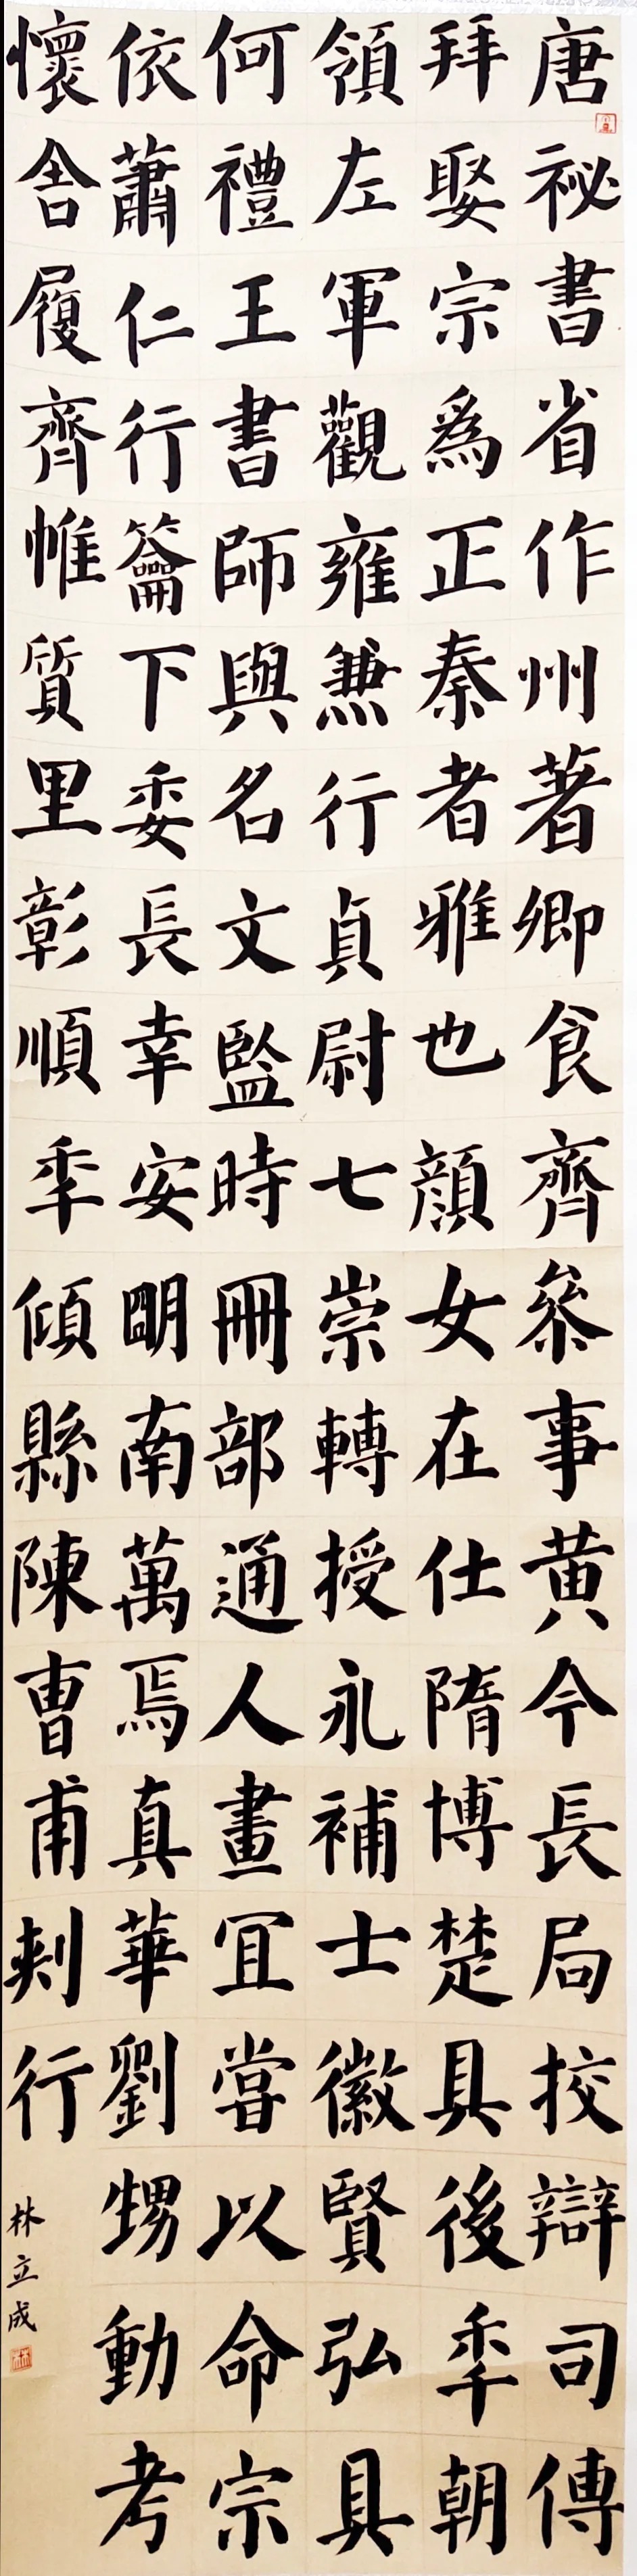 唐祕書省作州著卿食齊叅事黄今長局挍辯司傳
拜娶宗爲正秦者雅也顔女在仕隋博楚具後秊朝
領左軍觀雍兼行貞尉七崇轉授永補士徽賢弘具
何禮王書師與名文監時冊部通人畫冝嘗以命宗
依蕭仁行籥下委長幸安明南萬焉真華劉甥動考
懷舍履齊惟質里彰順秊傾縣陳曹甫剌行
林立成